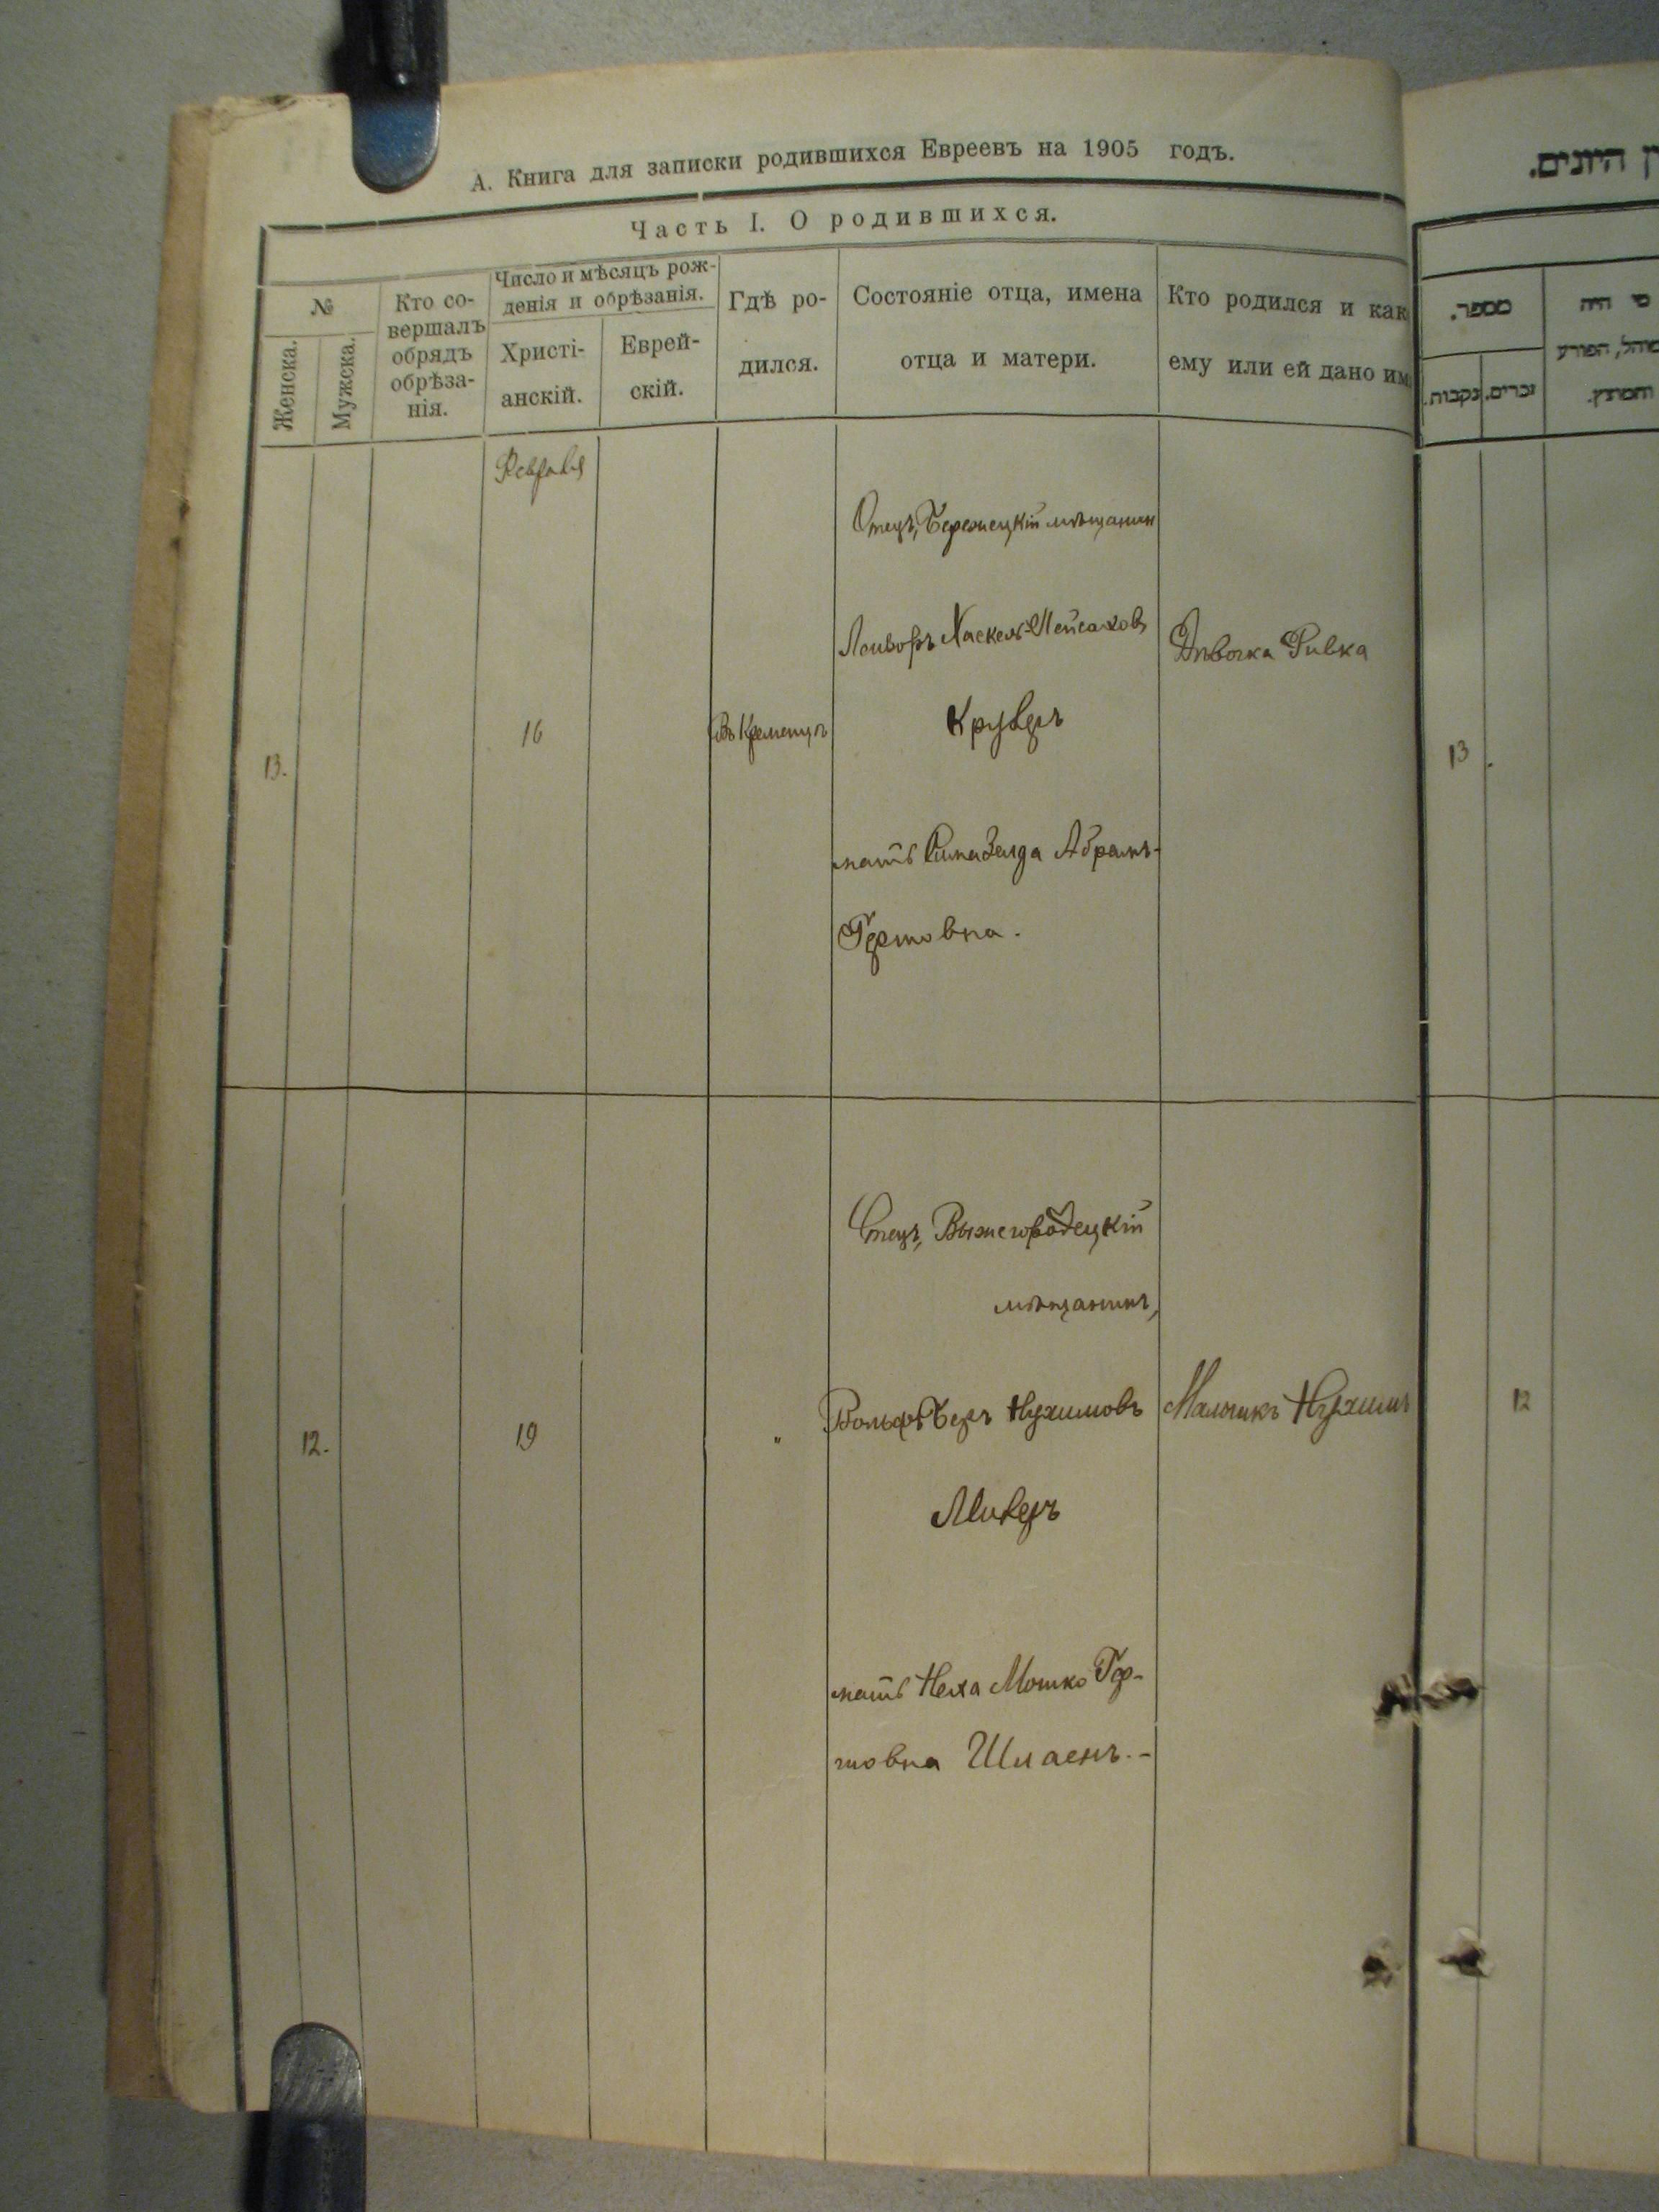 А. Книга для записки родившихся Евреевъ на 1905 годъ.
Часть I. О родившихся.
№
Женска.
Мужска.
Кто со-
вершалъ
обрядъ
обрѣза-
нія.
Число и мѣсяцъ рож-
денія и обрѣзанія.
Христі-
анскій.
Еврей-
скій.
Гдѣ ро-
дился.
Состояніе отца, имена
отца и матери.
Кто родился и как
ему или ей дано им
Февраля
13.
16
Въ Кременцѣ
Отецъ, Бережецкій мѣщанин
Хаскель-Пейсахов
мать Зелда Абрамъ-
Гершовна.
Дѣвочка Ривка
12.
19
"
Отецъ, Вышегородецкій
мѣщанинъ,
Вольфъ Беръ Нухимовъ
мать Неха Мошко Гер-
шовна
Мальчикъ Нухимъ
ן היונים.
מספר.
נקבות.
זכרים.
מי היה
מוהל, הפורע
והמוצץ.
13.
12